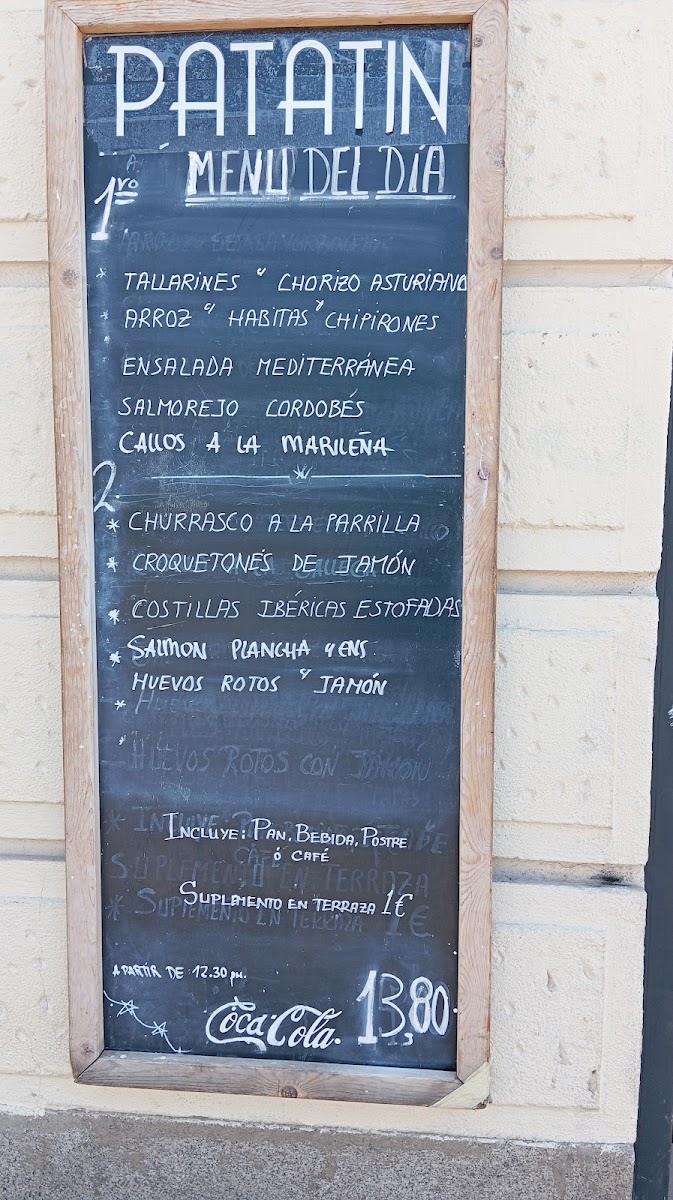 PATATIN
MENU DEL DÍA
1ro
TALLARINES " CHORIZO ASTURIANO
ARROZ " HABITAS Y CHIPIRONES
ENSALADA MEDITERRÁNEA
SALMOREJO CORDOBÉS
CALLOS A LA MARILEÑA
2
* CHURRASCO A LA PARRILLA
* CROQUETONES DE JAMÓN
* COSTILLAS IBÉRICAS ESTOFADAS
* SALMON PLANCHA Y ENS
HUEVOS ROTOS Y JAMÓN
HUEVOS ROTOS CON JAMÓN
INCLUYE: PAN, BEBIDA, POSTRE
ó CAFÉ
SUPLEMENTO EN TERRAZA
SUPLEMENTO EN TERRAZA 1€
* SUPLEMENTO EN TERRAZA 1€
A PARTIR DE 12.30 pm.
Coca-Cola.
13,80